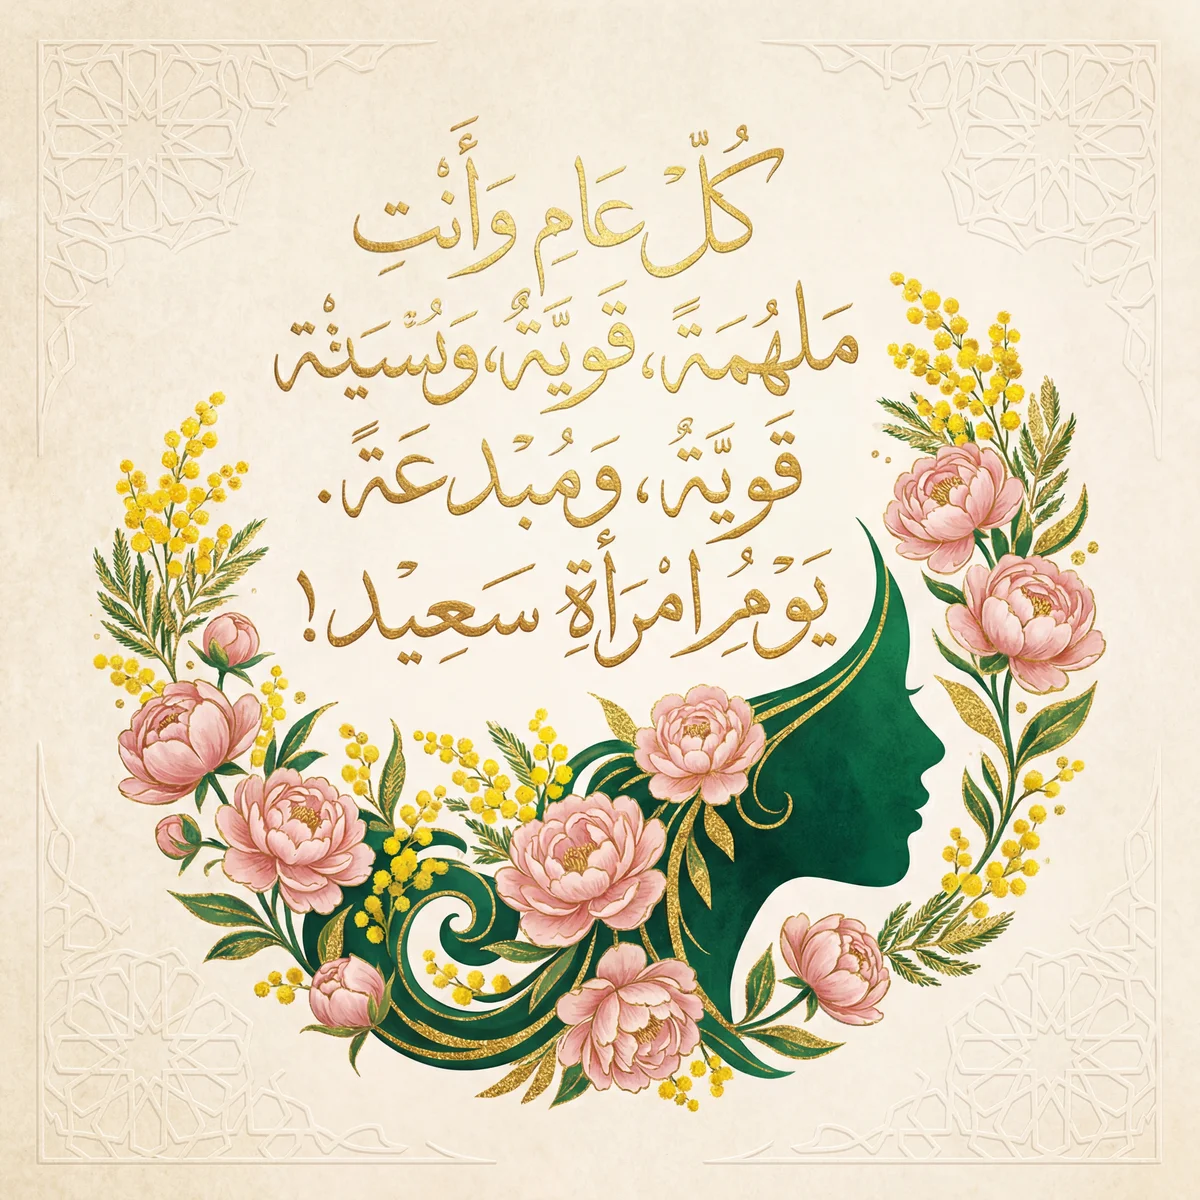 كُلّ عَامِ وَأَنْتِ
مَلهُمَةً، قَويَّةٌ، وَبُسْيَنْة
قَويَّةٌ، وَمُبْدعَةً.
يَوْمُِ امْرَأَةِ سَعِيْد!